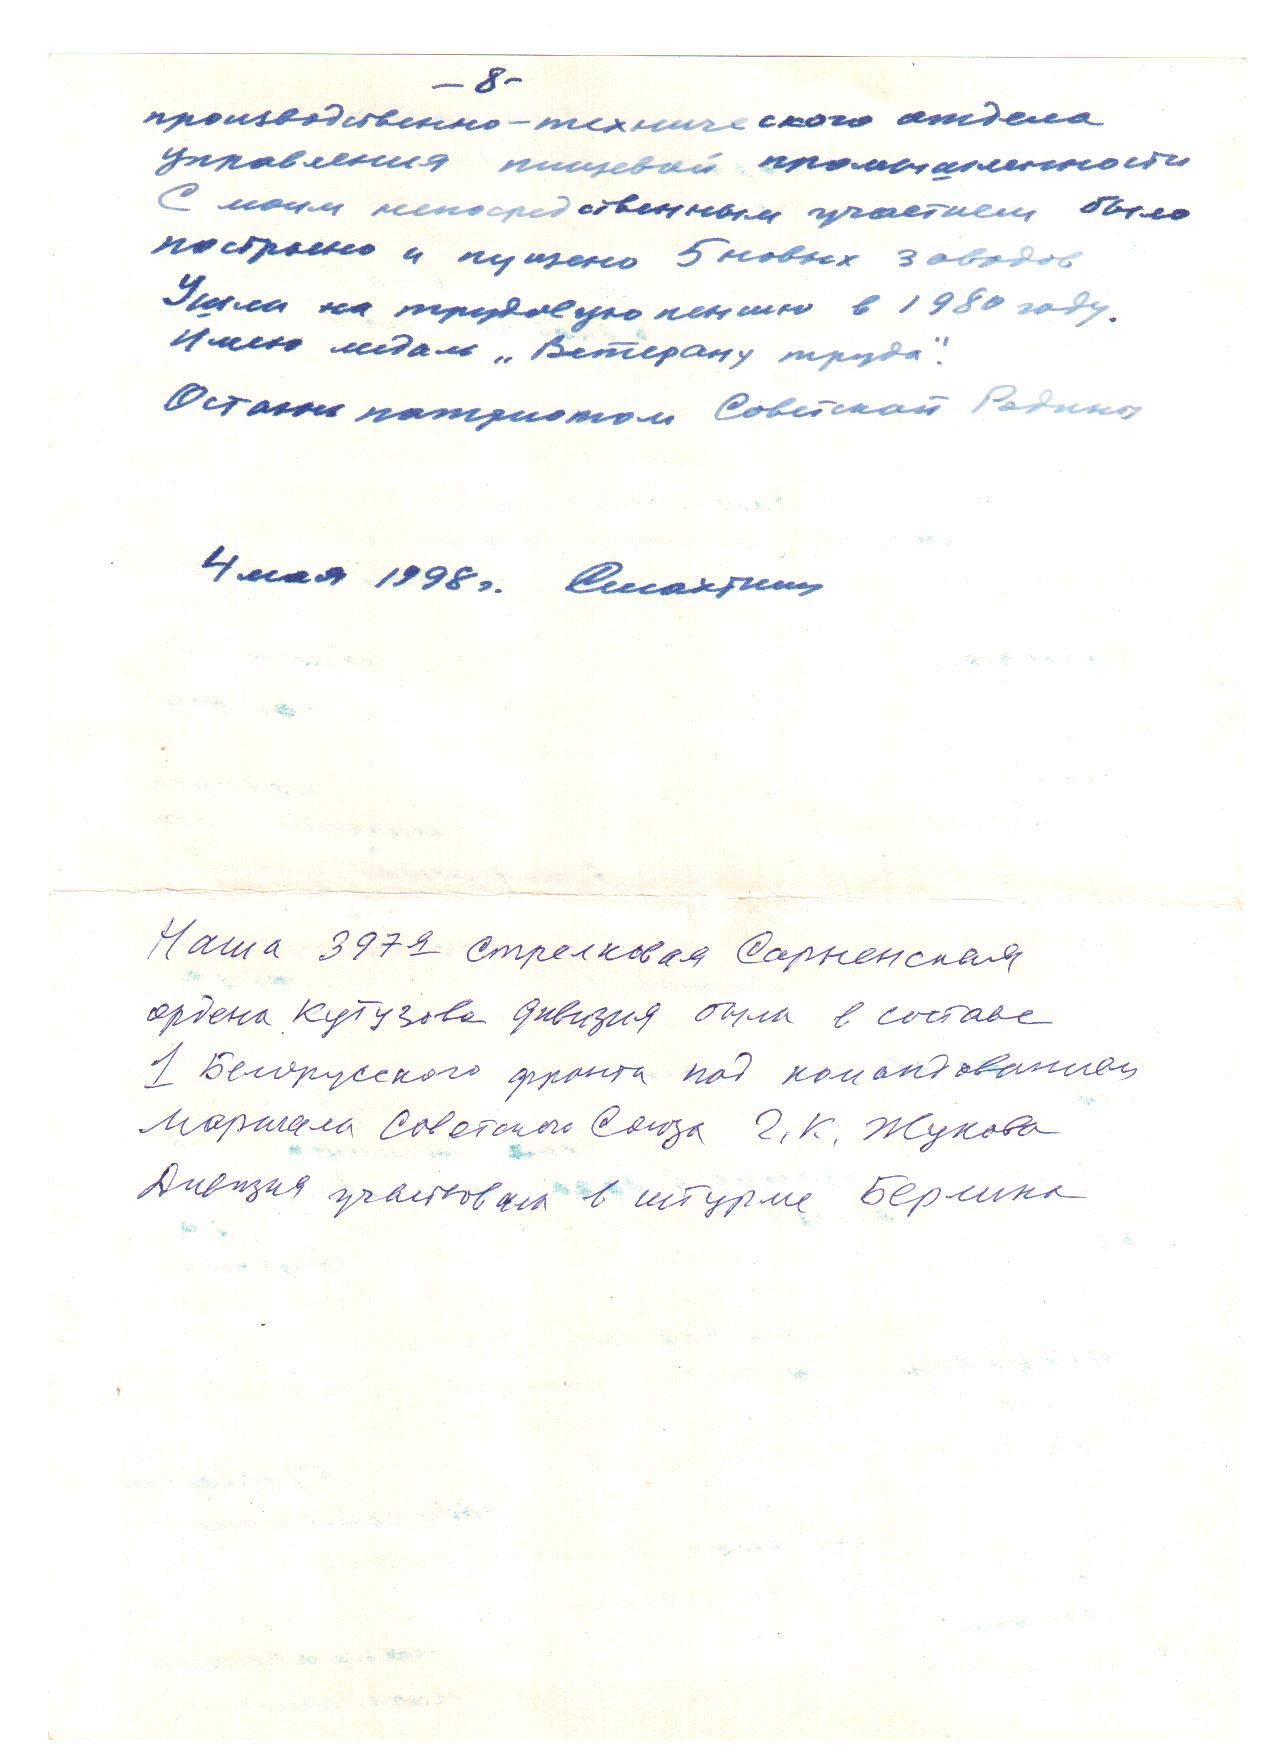 – 8 –
производственно-технического отдела
управления пищевой промышленности
С моим непосредственным участием было
построено и пущено 5 новых заводов
Ушли на трудовую пенсию в 1980 году.
Имею медаль „Ветерану труда".
Остаюсь патриотом Советской Родины
4 мая 1998 г.
Наша 397я стрелковая Сарненская
ордена Кутузова дивизия была в составе
1 Белорусского фронта под командованием
Маршала Советского Союза Г. К. Жукова
Дивизия участвовала в штурме Берлина